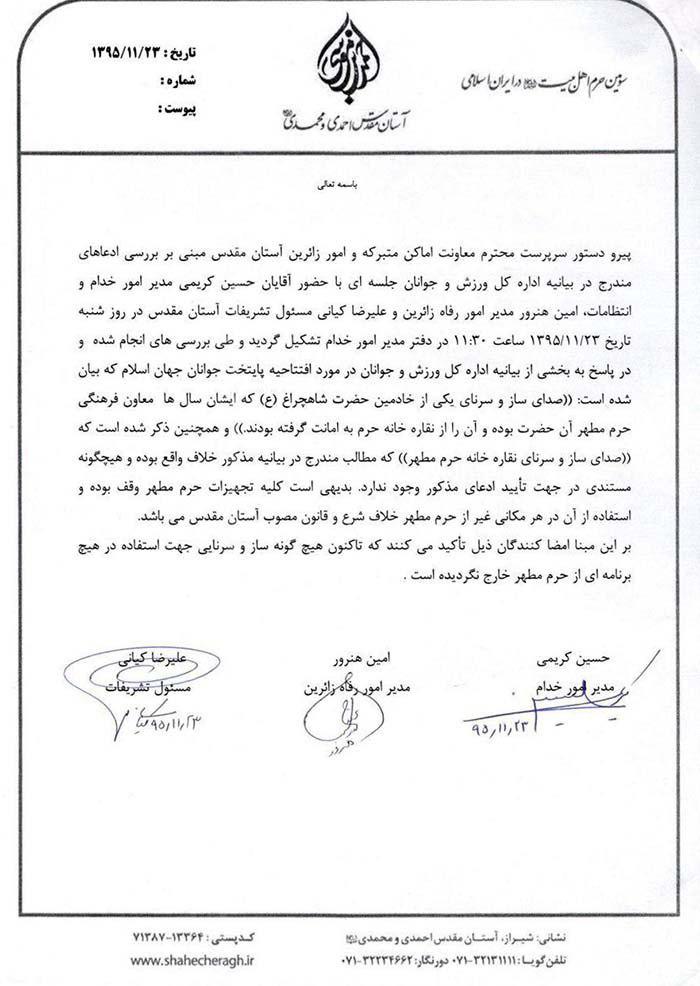 تاریخ : ۱۳۹۵/۱۱/۲۳
شماره :
پیوست :
آستان مقدس احمدی و محمدی
سومین حرم اهل بیت در ایران اسلامی
باسمه تعالی
پیرو دستور سرپرست محترم معاونت اماکن متبرکه و امور زائرین آستان مقدس مبنی بر بررسی ادعاهای
مندرج در بیانیه اداره کل ورزش و جوانان جلسه ای با حضور آقایان حسین کریمی مدیر امور خدام و
انتظامات، امین هنرور مدیر امور رفاه زائرین و علیرضا کیانی مسئول تشریفات آستان مقدس در روز شنبه
تاریخ ۱۳۹۵/۱۱/۲۳ ساعت ۱۱:۳۰ در دفتر مدیر امور خدام تشکیل گردید و طی بررسی های انجام شده و
در پاسخ به بخشی از بیانیه اداره کل ورزش و جوانان در مورد افتتاحیه پایتخت جوانان جهان اسلام که بیان
شده است: ((صدای ساز و سرنای یکی از خادمین حضرت شاهچراغ (ع) که ایشان سال ها معاون فرهنگی
حرم مطهر آن حضرت بوده و آن را از نقاره خانه حرم به امانت گرفته بودند.)) و همچنین ذکر شده است که
((صدای ساز و سرنای نقاره خانه حرم مطهر)) که مطالب مندرج در بیانیه مذکور خلاف واقع بوده و هیچگونه
مستندی در جهت تأیید ادعای مذکور وجود ندارد. بدیهی است کلیه تجهیزات حرم مطهر وقف بوده و
استفاده از آن در هر مکانی غیر از حرم مطهر خلاف شرع و قانون مصوب آستان مقدس می باشد.
بر این مبنا امضا کنندگان ذیل تأکید می کنند که تاکنون هیچ گونه ساز و سرنایی جهت استفاده در هیچ
برنامه ای از حرم مطهر خارج نگردیده است .
حسین کریمی
مدیر امور خدام
۹۵/۱۱/۲۳
امین هنرور
مدیر امور رفاه زائرین
هنرور
علیرضا کیانی
مسئول تشریفات
۹۵/۱۱/۲۳
نشانی: شیراز، آستان مقدس احمدی و محمدی
کدپستی : ۱۳۳۶۴-۷۱۳۸۷
تلفن گویا : ۳۲۱۳۱۱۱۱-۰۷۱ دورنگار: ۳۲۲۳۴۶۶۲-۰۷۱
www.shahecheragh.ir